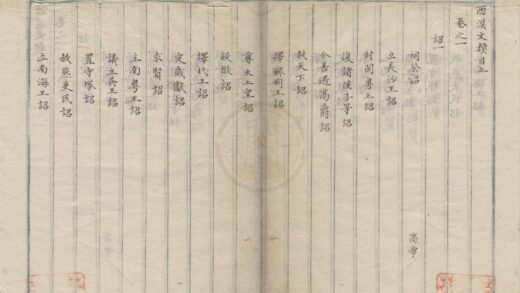 西漢文類目上
卷之一
詔一
祠祭詔 高帝
立長沙王詔
封閩粵王詔
復諸侯子等詔
令吏遇高爵詔
赦天下詔
擇荊王詔
尊太上皇詔
赦獄詔
擇代王詔
定歲獻詔
求賢詔
立南粵王詔
議立吳王詔
置守塚詔
赦燕吏民詔
立南海王詔